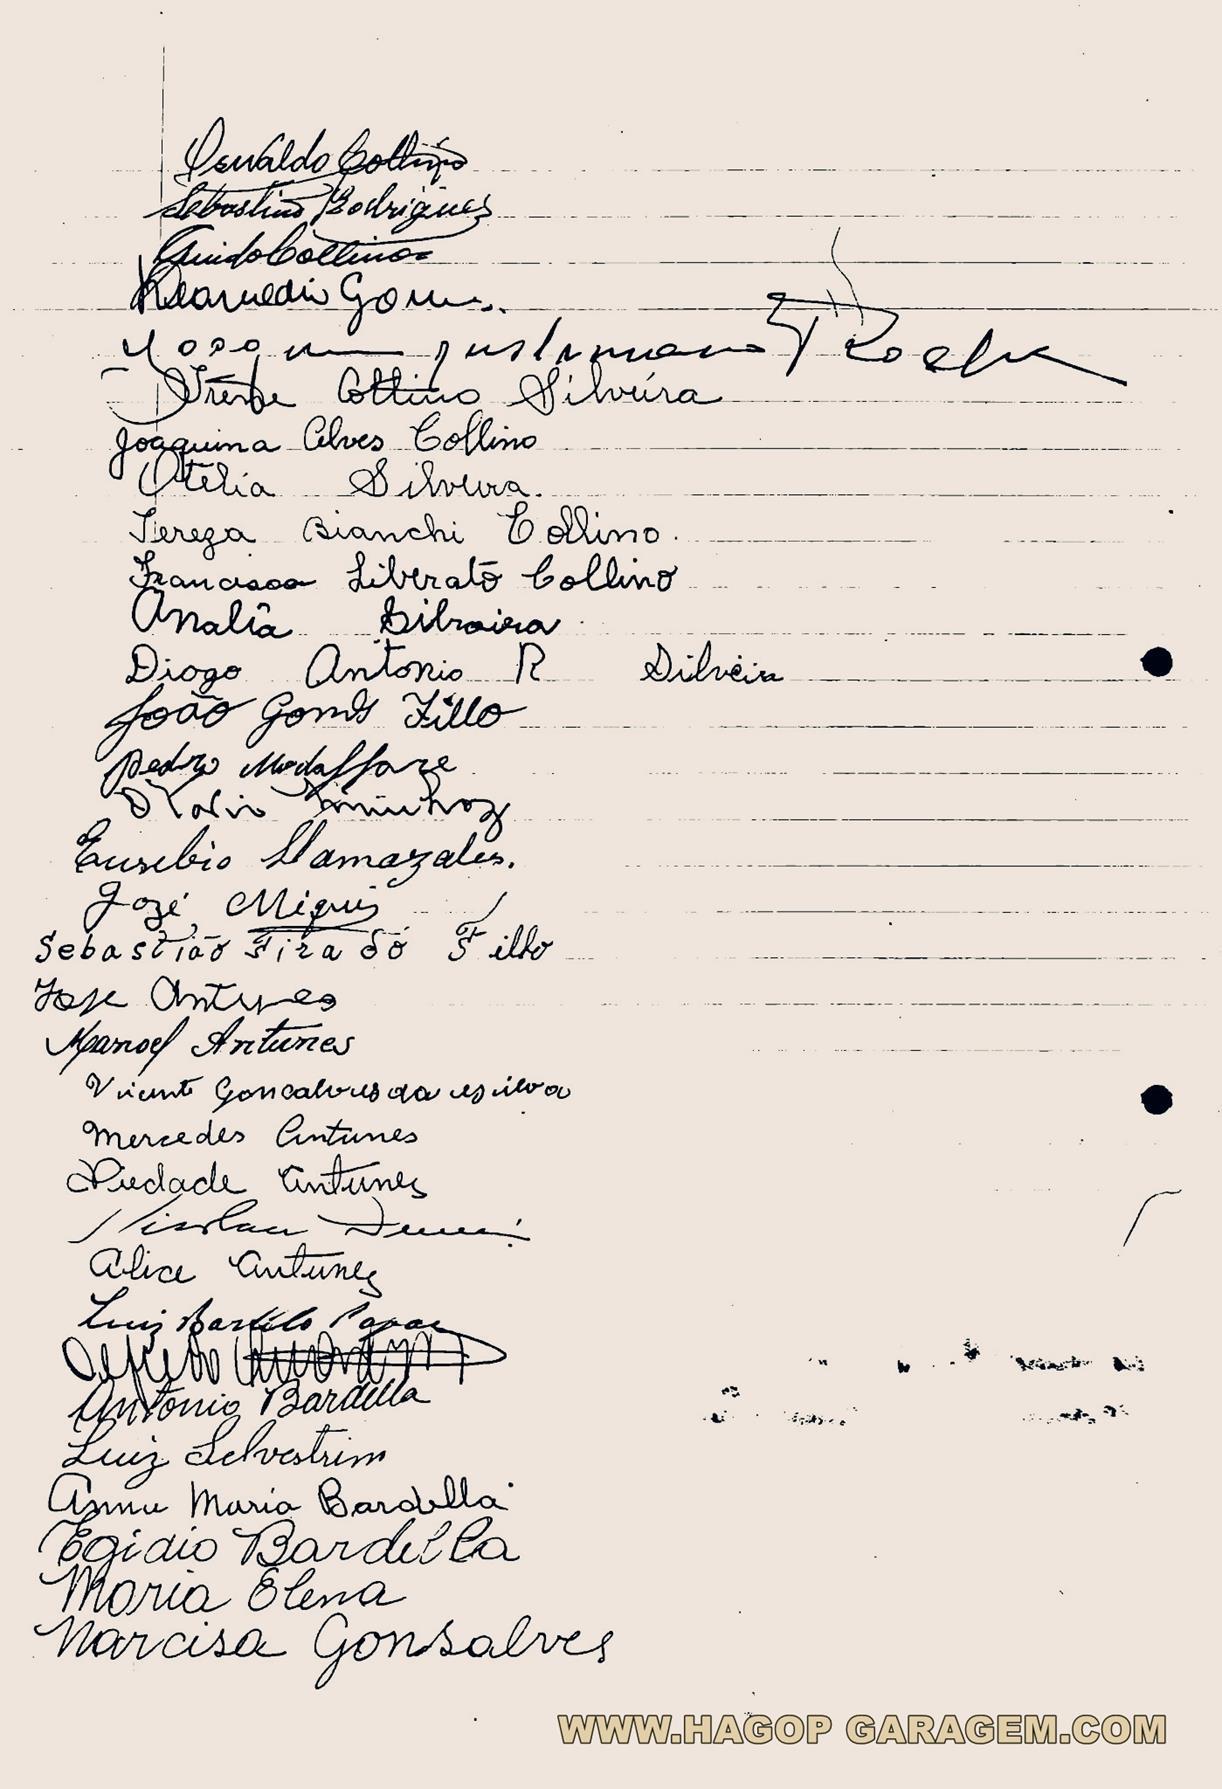 Osvaldo Collino
Sebastião Rodrigues
Guido Collino
Gom
Joaquim Justiniano Rocha
Irene Collino Silveira
Joaquina Alves Collino
Otelia Silveira.
Tereza Bianchi Collino.
Francisca Liberato Collino
Analia Silveira
Diogo Antonio R Silveira
João Gomes Fillo
Pedro Modaffare
Eusebio Llamazales.
José Miguis
Sebastião Firadó Filho
Jose Antunes
Manoel Antunes
Vicente Goncalves da silva
Mercedes Antunes
Piedade Antunes
Nicolau
Alice Antunes
Luiz Bartilo
Alfredo
Antonio Bardella
Luiz Selvestrim
Anna Maria Bardella
Egidio Bardella
Maria Elena
Narcisa Gonsalves
WWW.HAGOP GARAGEM.COM